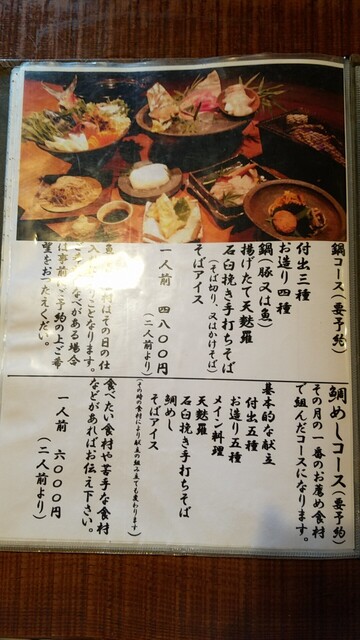 鍋コース(要予約)
付出三種
お造り四種
鍋(豚又は魚)
揚げたて天麩羅
石臼挽き手打ちそば
(そば切り、又はかけそば)
そばアイス
一人前 四八〇〇円
(二人前より)
はその日の仕
となります。
なべがある場合
は事前にご予約の上ご希
望をおつたえください。
鯛めしコース(要予約)
その月の一番のお薦め食材
で組んだコースになります。
基本的な献立
付出五種
お造り五種
メイン料理
天麩羅
石臼挽き手打ちそば
鯛めし
そばアイス
(その時の食材により献立の組み立ても変わります)
食べたい食材や苦手な食材
などがあればお伝え下さい。
一人前 六〇〇〇円
(二人前より)